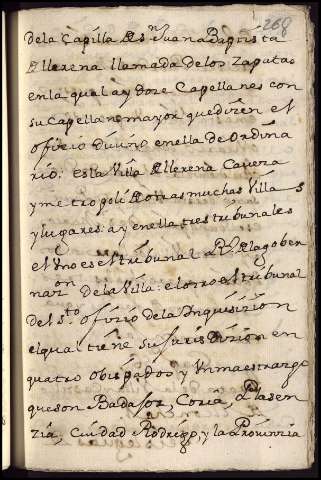 268
de la Capilla de Sn Juan Baptista
de llerena llamada de los Zapatas
en la qual ay doze Capellanes con
su Capellan mayor que dizen el
ofizio divino en ella de Ordina
rio: es la Villa de llerena Caveza
y metropoli de otras muchas Villas
y lugares: ay en ella tres tribunales
el Uno es el tribunal de la gober
nazon de la Villa: el otro el tribunal
del sto. ofizio de la Inquisizion
el qual tiene su Jurisdizion en
quatro obispados y Un maestrazgo
que son Badajoz, Coria, Plasen
zia, Ciudad Rodrigo, y la Provinzia